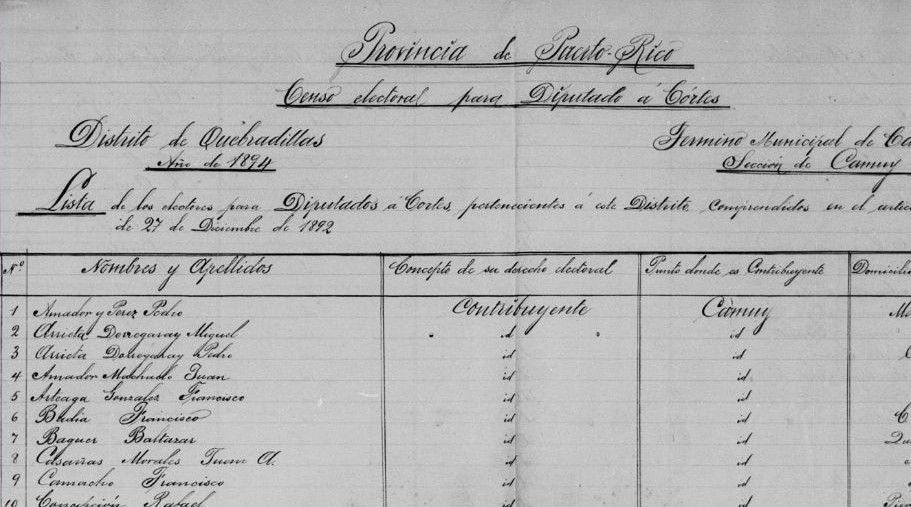 Provincia de Puerto-Rico
Censo electoral para Diputado á Córtes
Distrito de Quebradillas
Año de 1894
Termino Municipal de Ca
Sección de Camuy
Lista de los electores para Diputados á Cortes, pertenecientes á este Distrito comprendidos en el artic
de 27 de Diciembre de 1892
Nº Nombres y Apellidos Concepto de su derecho electoral Punto donde es Contribuyente Domicilio
1 Amador y Perez Pedro Contribuyente Camuy
2 Arrieta Dorregaray Miguel id id
3 Arrieta Dorregaray Pedro id id
4 Amador Machado Juan id id
5 Arteaga Gonzalez Francisco id id
6 Badia Francisco id id
7 Baquer Baltazar id id
8 Casañas Morales Juan A. id id
9 Camacho Francisco id id
10 Concepción Rafael id id